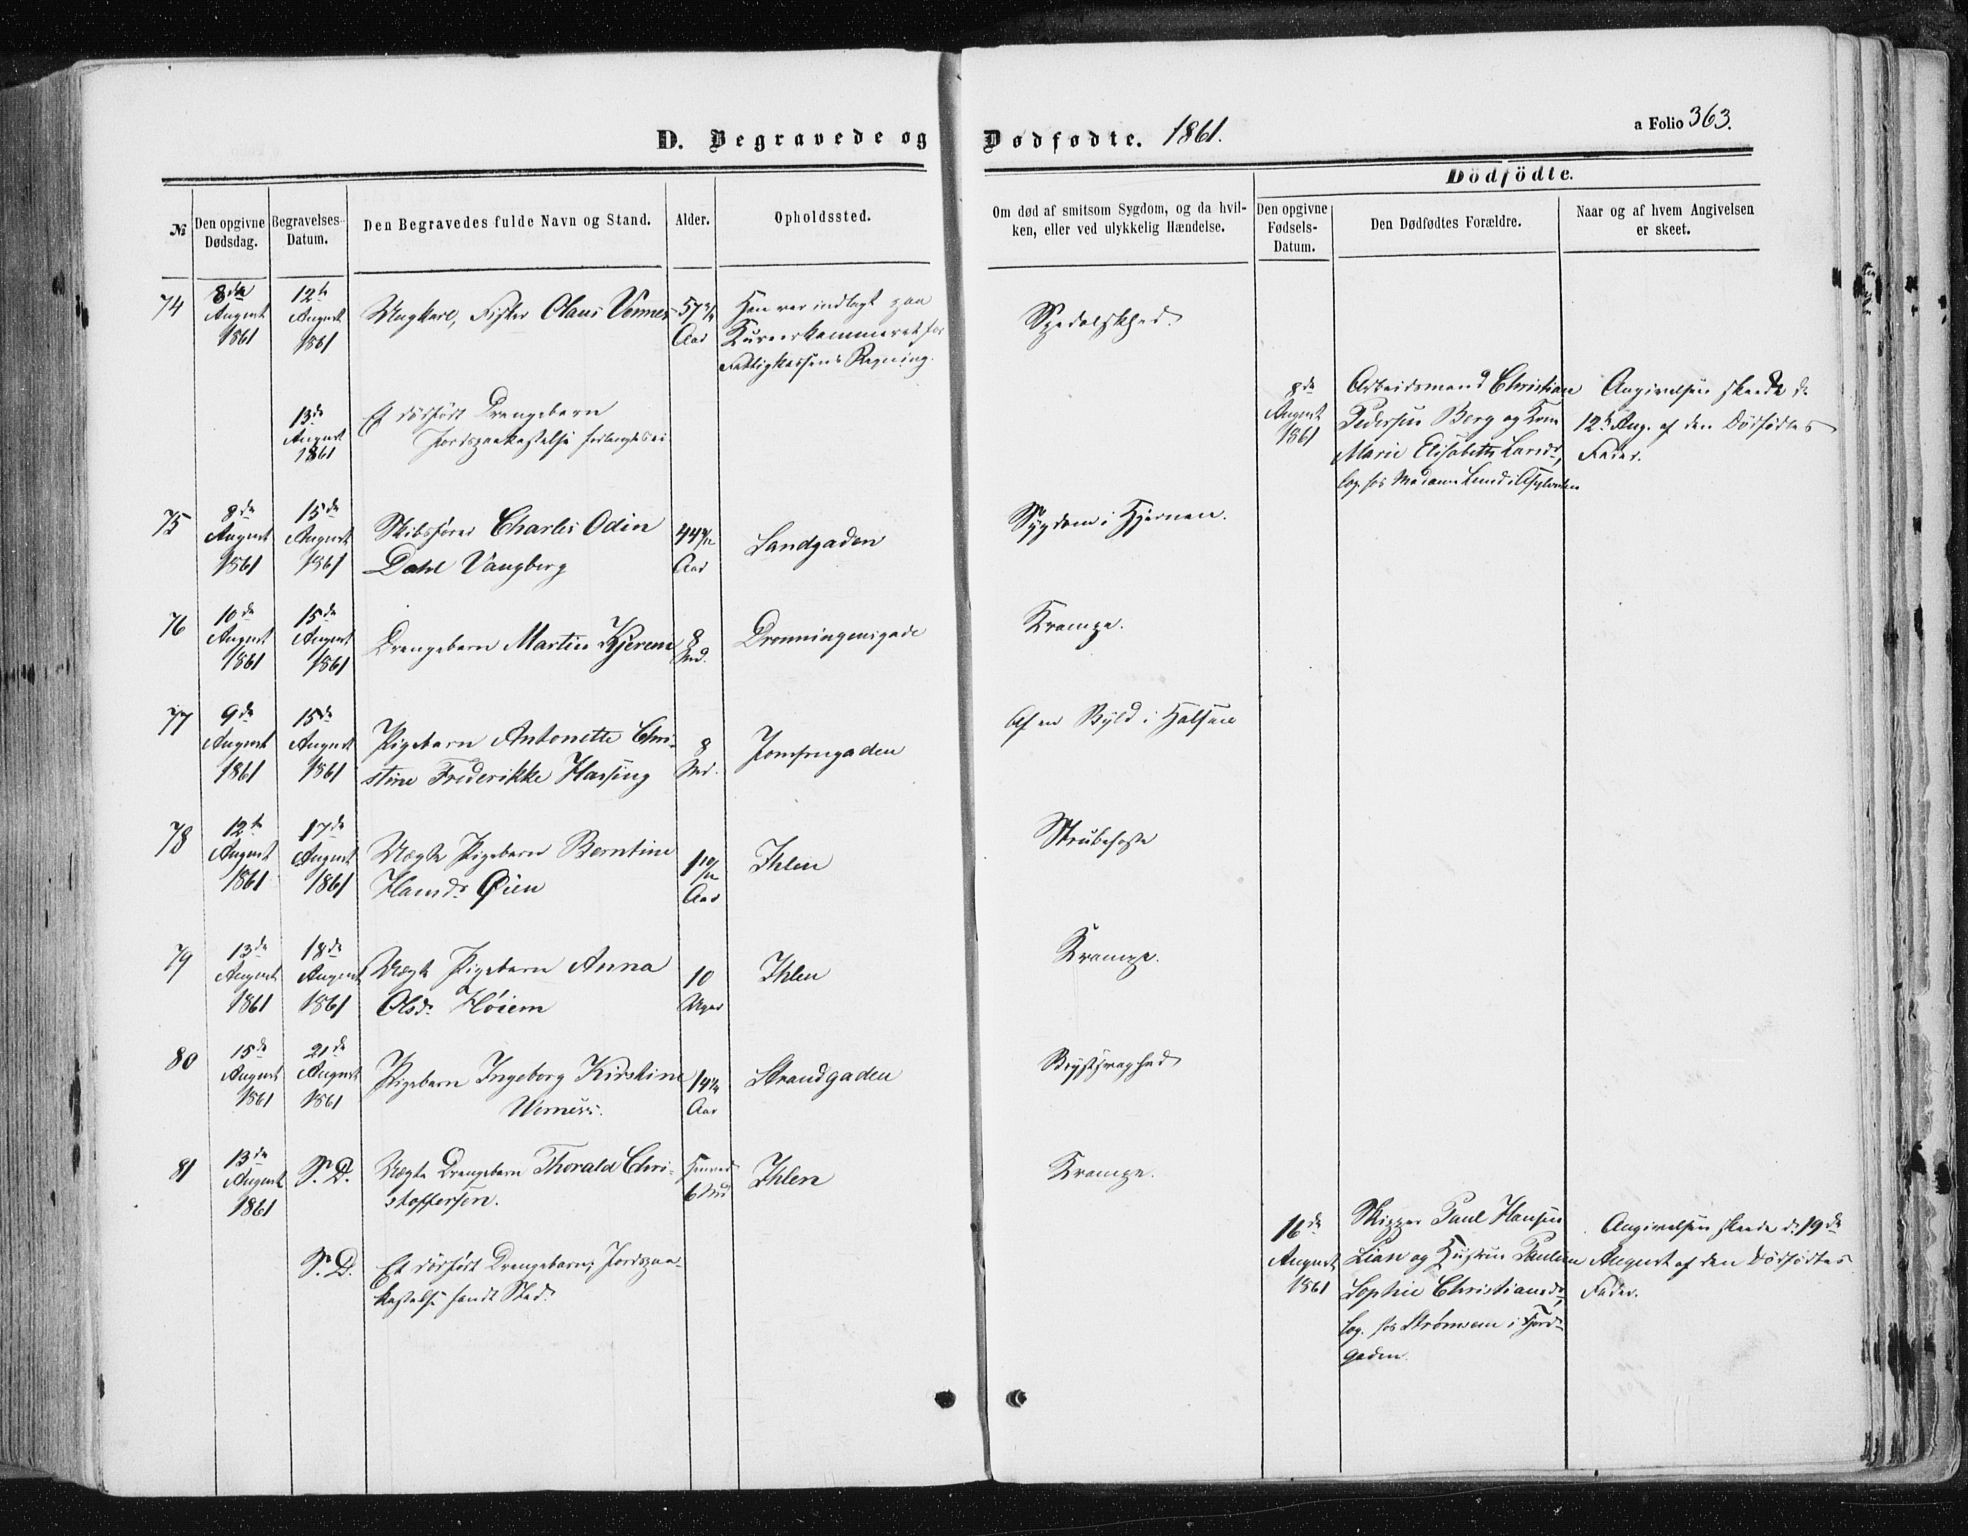 D. Begravede og Dødfødte. 1861.
a Folio 363.
Dödfödte.
№
Den opgivne Dødsdag.
Begravelses-Datum.
Den Begravedes fulde Navn og Stand.
Alder.
Opholdssted.
Om død af smitsom Sygdom, og da hvil-
ken, eller ved ulykkelig Hændelse.
Den opgivne Fødsels-Datum.
Den Dødfødtes Forældre.
Naar og af hvem Angivelsen
er skeet.
74
8de August 1861
12te August 1861
Ungkarl, Fisker Claus
57 Aar
Han var indlagt paa
for
Fattigkassens Regning.
Spedalskhed.
13de August 1861
Et dødfødt Drengebarn
Jordspaakastelse
8de August 1861
Arbeidsmand Christian
Pedersen Berg og Kone
Marie Elisabeth Larsdr,
log. hos Madame Lund i
Angivelsen skeede d.
12te Aug. af den Dødfødtes
Fader.
75
8de August 1861
15de August 1861
Skibsfører Charles Odin
Dahl Vangberg
44 Aar
Sandgaden
Sygdom i Hjernen.
76
10de August 1861
15de August 1861
Drengebarn Martin Kjerem
8 Md.
Dronningensgade
Krampe.
77
9de August 1861
15de August 1861
Pigebarn Antonette Chri-
stine Frederikke Hassing
8 Md.
Jomfrugaden
Af en Byld i Halsen
78
12te August 1861
17de August 1861
Uægte Pigebarn Berntine
Hansdr Øien
1 10/12 Aar
Ihlen
Strubehoste
79
13de August 1861
18de August 1861
Uægte Pigebarn Anna
Olsdr Høiem
10 Uger
Ihlen
Krampe.
80
15de August 1861
21de August 1861
Pigebarn Ingeborg Kirstine
14 Aar
Strandgaden
Brystsvaghed
81
13de August 1861
S. D.
Uægte Drengebarn Thorald Chri-
stoffersen.
6 Md
Ihlen
Krampe.
S. D.
Et dødfødt Drengebarn; Jordspaa-
kastelse fandt Sted.
16de August 1861
Skipper Paul Hansen
Lian og Hustru
Sophie Christiansdr,
log. hos i Fjord-
gaden.
Angivelsen skeede d. 19de
August af den Dødfødtes
Fader.